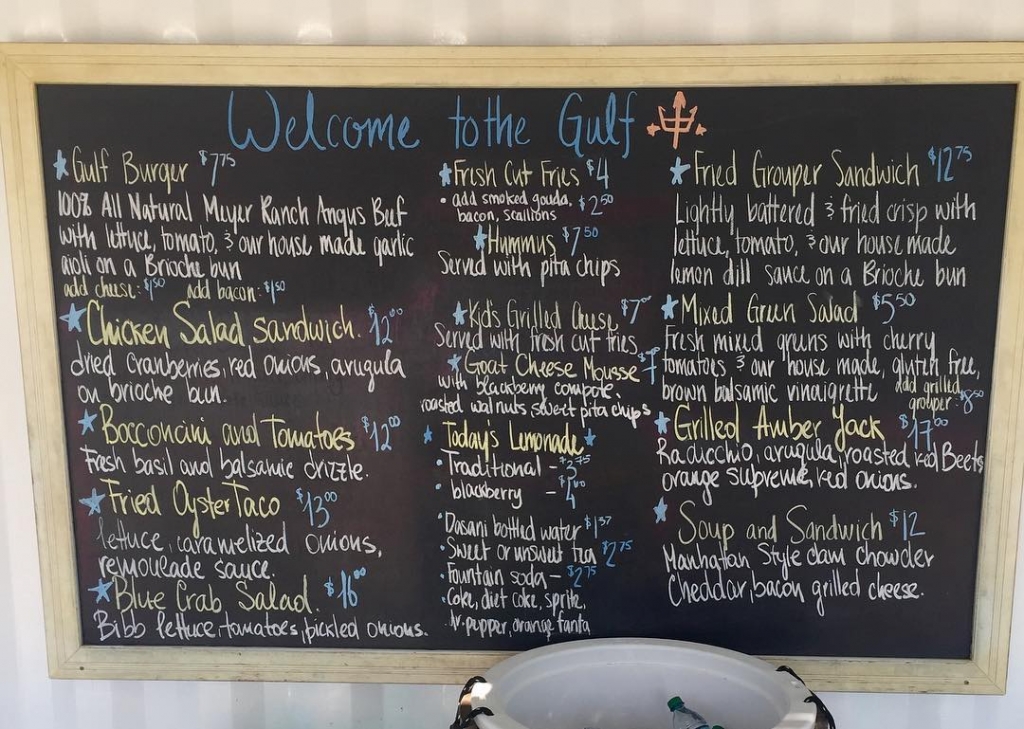 Welcome to the Gulf
Gulf Burger $7.75
100% All Natural Meyer Ranch Angus Beef
with lettuce, tomato, & our house made garlic
aioli on a Brioche bun
add cheese: $1.50 add bacon: $1.50
Chicken Salad Sandwich. $12.00
dried cranberries, red onions, arugula
on brioche bun.
Bocconcini and Tomatoes $12.00
Fresh basil and balsamic drizzle.
Fried Oyster Taco $13.00
lettuce, caramelized onions,
remoulade sauce.
Blue Crab Salad. $16.00
Bibb lettuce, tomatoes, pickled onions.
Fresh Cut Fries $4
• add smoked gouda, $2.50
bacon, scallions
Hummus $7.50
Served with pita chips
Kid's Grilled Cheese $7.00
Served with fresh cut fries
Goat Cheese Mousse $9
with blackberry compote,
roasted walnuts sweet pita chips
Today's Lemonade
• Traditional - $3.75
• blackberry - $4.00
• Dasani bottled water $1.57
• Sweet or unsweet tea $2.75
• Fountain soda - $2.75
• Coke, diet coke, sprite,
dr. pepper, orange fanta
Fried Grouper Sandwich $12.75
Lightly battered & fried crisp with
lettuce, tomato, & our house made
lemon dill sauce on a Brioche bun
Mixed Green Salad $5.50
Fresh mixed greens with cherry
tomatoes & our house made, gluten free,
brown balsamic vinaigrette add grilled
grouper: $8.50
Grilled Amber Jack $17.00
Radicchio, arugula, roasted red Beets
orange supreme, red onions.
Soup and Sandwich $12
Manhattan Style clam chowder
Cheddar, bacon grilled cheese.